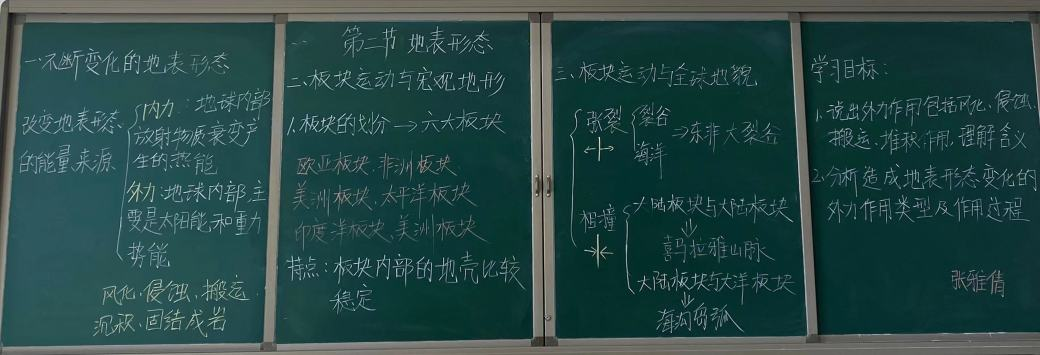 一、不断变化的地表形态
改变地表形态
的能量来源
内力：地球内部
放射物质衰变产
生的热能
外力：地球内部主
要是太阳能和重力
势能
风化、侵蚀、搬运、
沉积、固结成岩
第二节 地表形态
二、板块运动与宏观地形
1、板块的划分→六大板块
欧亚板块、非洲板块、
美洲板块、太平洋板块
印度洋板块、美洲板块
特点：板块内部的地壳比较
稳定
三、板块运动与全球地貌
张裂
裂谷
海洋
⇒东非大裂谷
相撞
大陆板块与大陆板块
⇓
喜马拉雅山脉
大陆板块与大洋板块
⇓
海沟岛弧
学习目标：
1、说出外力作用包括风化、侵蚀、
搬运、堆积作用，理解含义
2、分析造成地表形态变化的
外力作用类型及作用过程
张雅倩